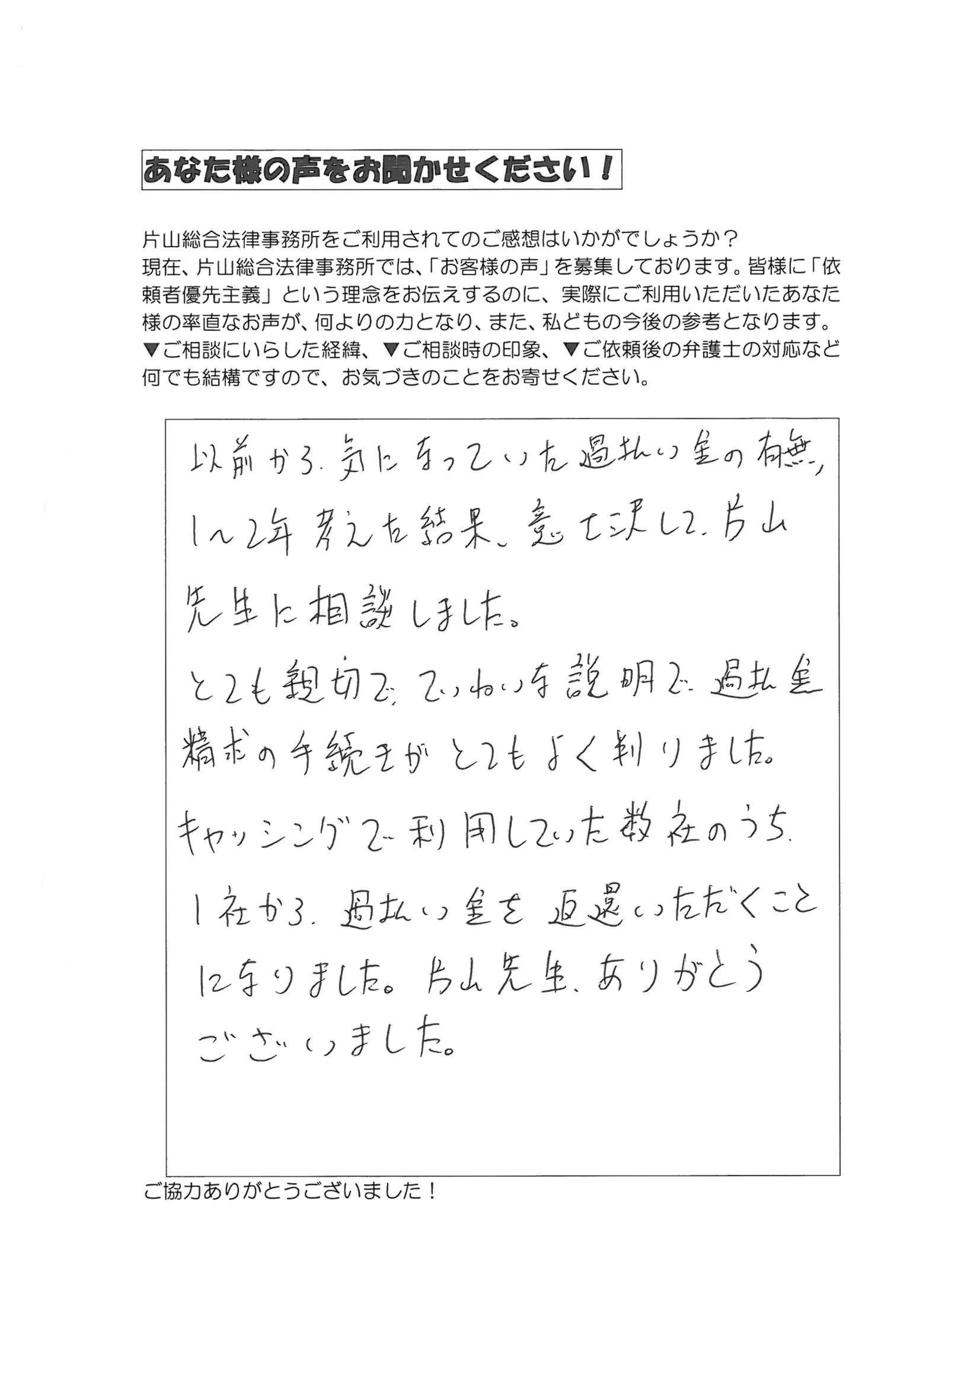 あなた様の声をお聞かせください！
片山総合法律事務所をご利用されてのご感想はいかがでしょうか？
現在、片山総合法律事務所では、「お客様の声」を募集しております。皆様に「依
頼者優先主義」という理念をお伝えするのに、実際にご利用いただいたあなた
様の率直なお声が、何よりの力となり、また、私どもの今後の参考となります。
▼ご相談にいらした経緯、▼ご相談時の印象、▼ご依頼後の弁護士の対応など
何でも結構ですので、お気づきのことをお寄せください。
以前から、気になっていた過払い金の有無、
1～2年考えた結果、意を決して、片山
先生に相談しました。
とても親切で、ていねいな説明で、過払金
精求の手続きがとてもよく判りました。
キャッシングで利用していた数社のうち、
1社から、過払い金を返還いただくこと
になりました。片山先生、ありがとう
ございました。
ご協力ありがとうございました！